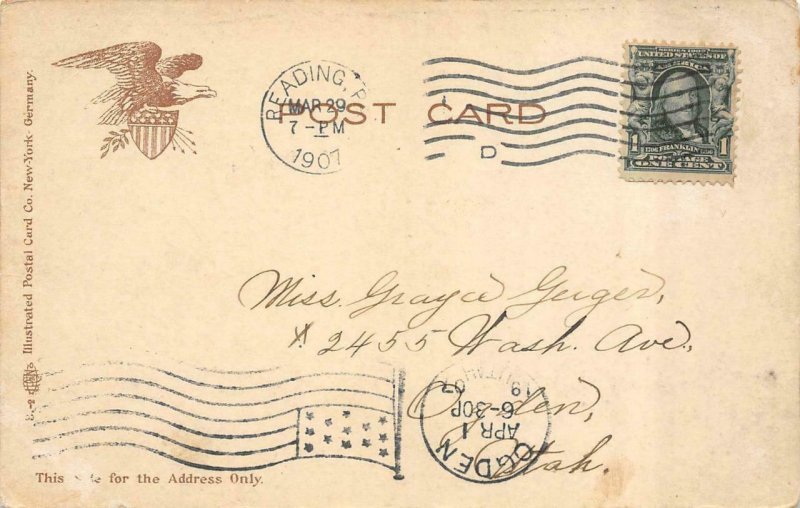 Illustrated Postal Card Co. New-York- Germany.
READING, P
MAR 29
7-PM
1907
POST CARD
D
SERIES 1902
UNITED STATES OF
AMERICA
1 FRANKLIN 1
POSTAGE
ONE CENT
Miss. Grayce Geiger,
2455 Wash. Ave.,
Ogden,
Utah.
OGDEN
APR 1
6-30P
1907
UTAH
This for the Address Only.